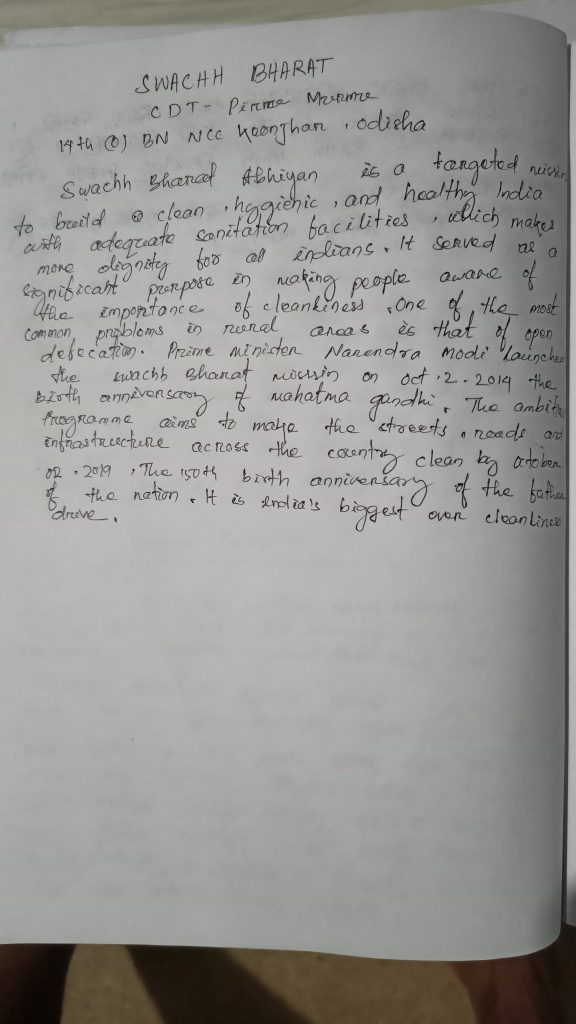 SWACHH BHARAT
CDT - Murmu
14th (O) BN NCC Keonjhar, Odisha
Swachh Bharat Abhiyan is a targeted
to build a clean, hygienic, and healthy India
with adequate sanitation facilities, which makes
more dignity for all indians. It served as a
significant purpose in making people aware of
the importance of cleankiness, One of the most
common probloms in rural areas is that of open
defecation. Prime minister Narendra modi launches
the swachh Bharat missin on Oct.2.2014 the
birth anniversary of mahatma gandhi. The ambiti
Programme aims to make the streets, roads and
infrastructure across the country clean by october
02.2019, The 150th birth anniversary of the father
of the nation. It is India's biggest ever cleanlines
drive.